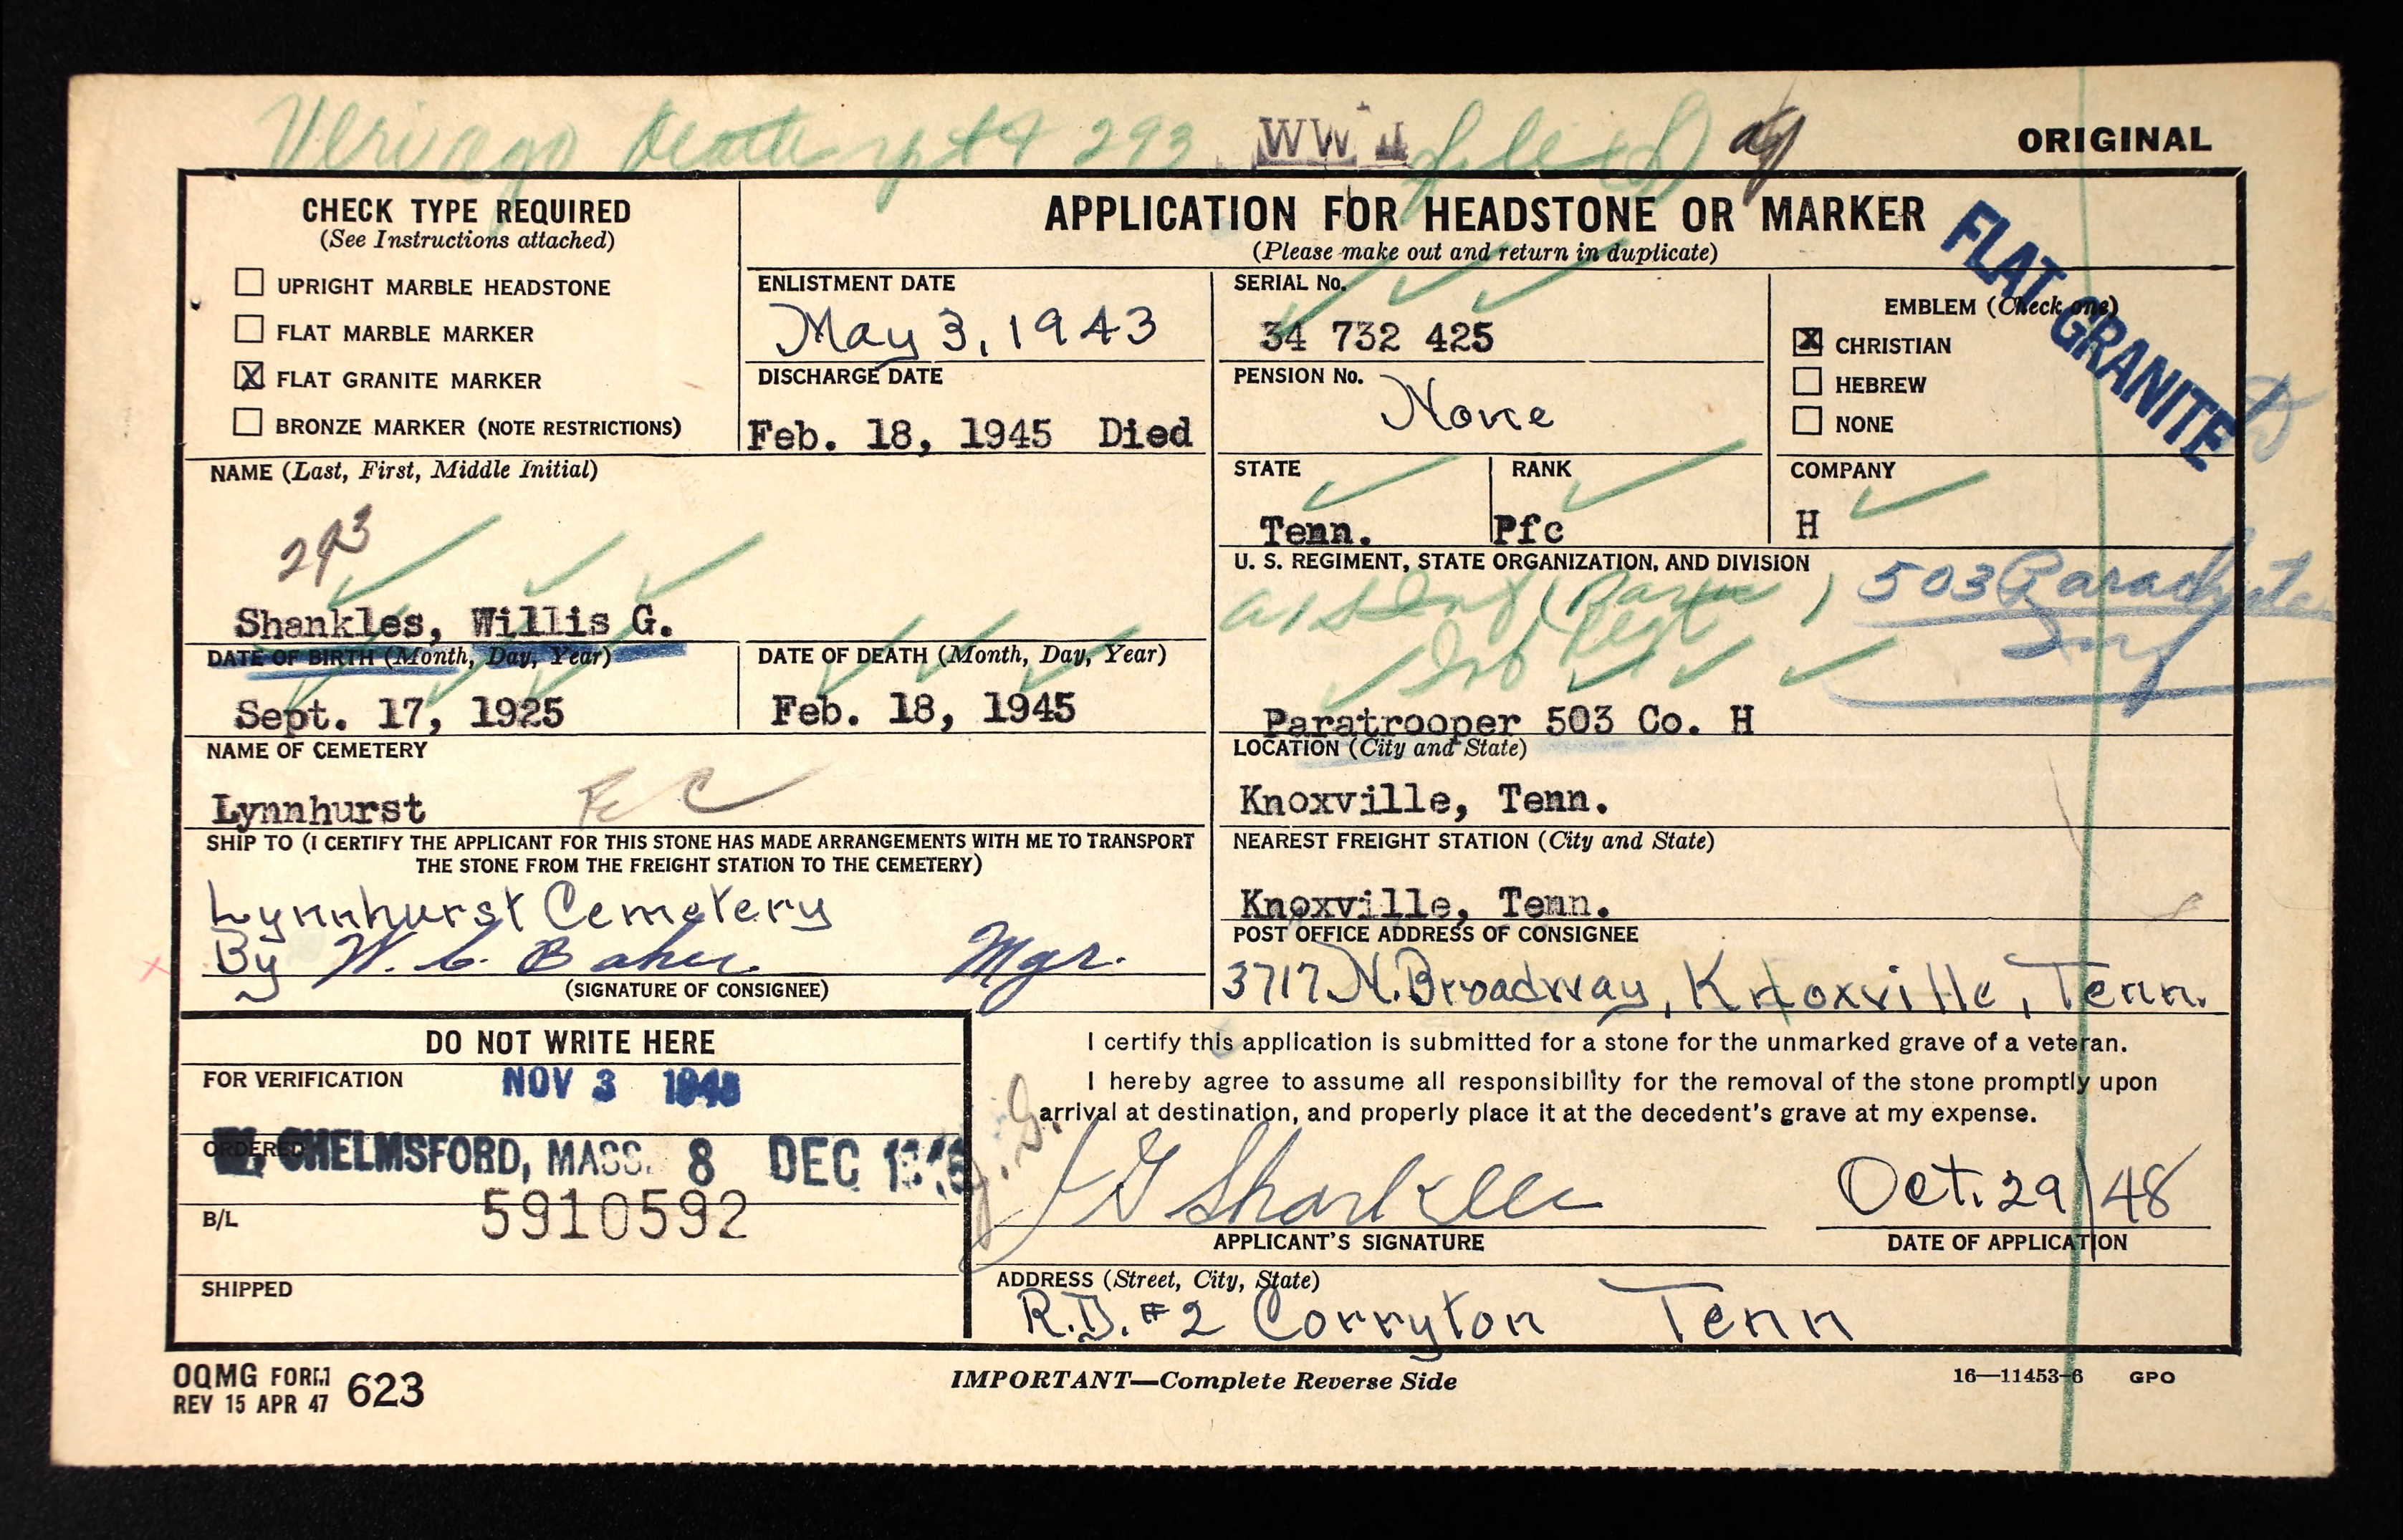 Death rpt 293 WW II ag
ORIGINAL
CHECK TYPE REQUIRED
(See Instructions attached)
UPRIGHT MARBLE HEADSTONE
FLAT MARBLE MARKER
X FLAT GRANITE MARKER
BRONZE MARKER (NOTE RESTRICTIONS)
APPLICATION FOR HEADSTONE OR MARKER
(Please make out and return in duplicate)
FLAT GRANITE
ENLISTMENT DATE
May 3, 1943
DISCHARGE DATE
Feb. 18, 1945 Died
SERIAL No.
34 732 425
PENSION No.
None
EMBLEM (Check one)
X CHRISTIAN
HEBREW
NONE
NAME (Last, First, Middle Initial)
293
Shankles, Willis G.
STATE
Tenn.
RANK
Pfc
COMPANY
H
U. S. REGIMENT, STATE ORGANIZATION, AND DIVISION
503 Parachute
Inf
Paratrooper 503 Co. H
DATE OF BIRTH (Month, Day, Year)
Sept. 17, 1925
DATE OF DEATH (Month, Day, Year)
Feb. 18, 1945
NAME OF CEMETERY
Lynnhurst
LOCATION (City and State)
Knoxville, Tenn.
SHIP TO (I CERTIFY THE APPLICANT FOR THIS STONE HAS MADE ARRANGEMENTS WITH ME TO TRANSPORT
THE STONE FROM THE FREIGHT STATION TO THE CEMETERY)
Lynnhurst Cemetery
By W. C. Baker Mgr.
(SIGNATURE OF CONSIGNEE)
NEAREST FREIGHT STATION (City and State)
Knoxville, Tenn.
POST OFFICE ADDRESS OF CONSIGNEE
3717 N. Broadway, Knoxville, Tenn.
DO NOT WRITE HERE
FOR VERIFICATION
NOV 3 1948
ORDERED
CHELMSFORD, MASS. 8 DEC
B/L
5910592
SHIPPED
I certify this application is submitted for a stone for the unmarked grave of a veteran.
I hereby agree to assume all responsibility for the removal of the stone promptly upon
arrival at destination, and properly place it at the decedent's grave at my expense.
J. G.
J G Shankles
APPLICANT'S SIGNATURE
Oct. 29/48
DATE OF APPLICATION
ADDRESS (Street, City, State)
R.D. #2 Corryton Tenn
OQMG FORM 623
REV 15 APR 47
IMPORTANT—Complete Reverse Side
16—11453-6 GPO